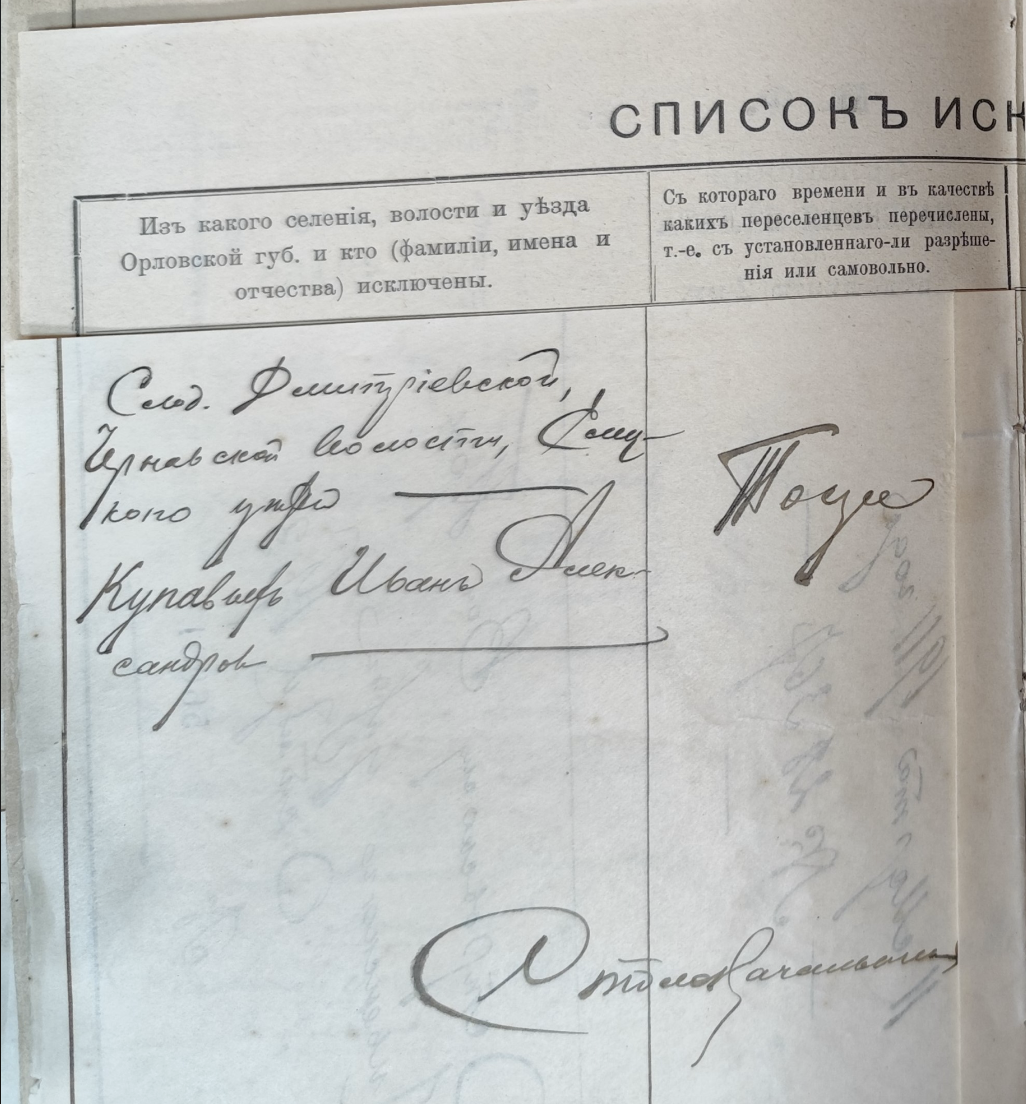 СПИСОКЪ ИСК
Изъ какого селенія, волости и уѣзда
Орловской губ. и кто (фамиліи, имена и
отчества) исключены.
Съ котораго времени и въ качествѣ
какихъ переселенцевъ перечислены,
т.-е. съ установленнаго-ли разрѣше-
нія или самовольно.
Слод. Дмитріевской,
Чернавской волости, Елец-
кого уѣзда
Иванъ Алек-
сандров
Столоначальникъ